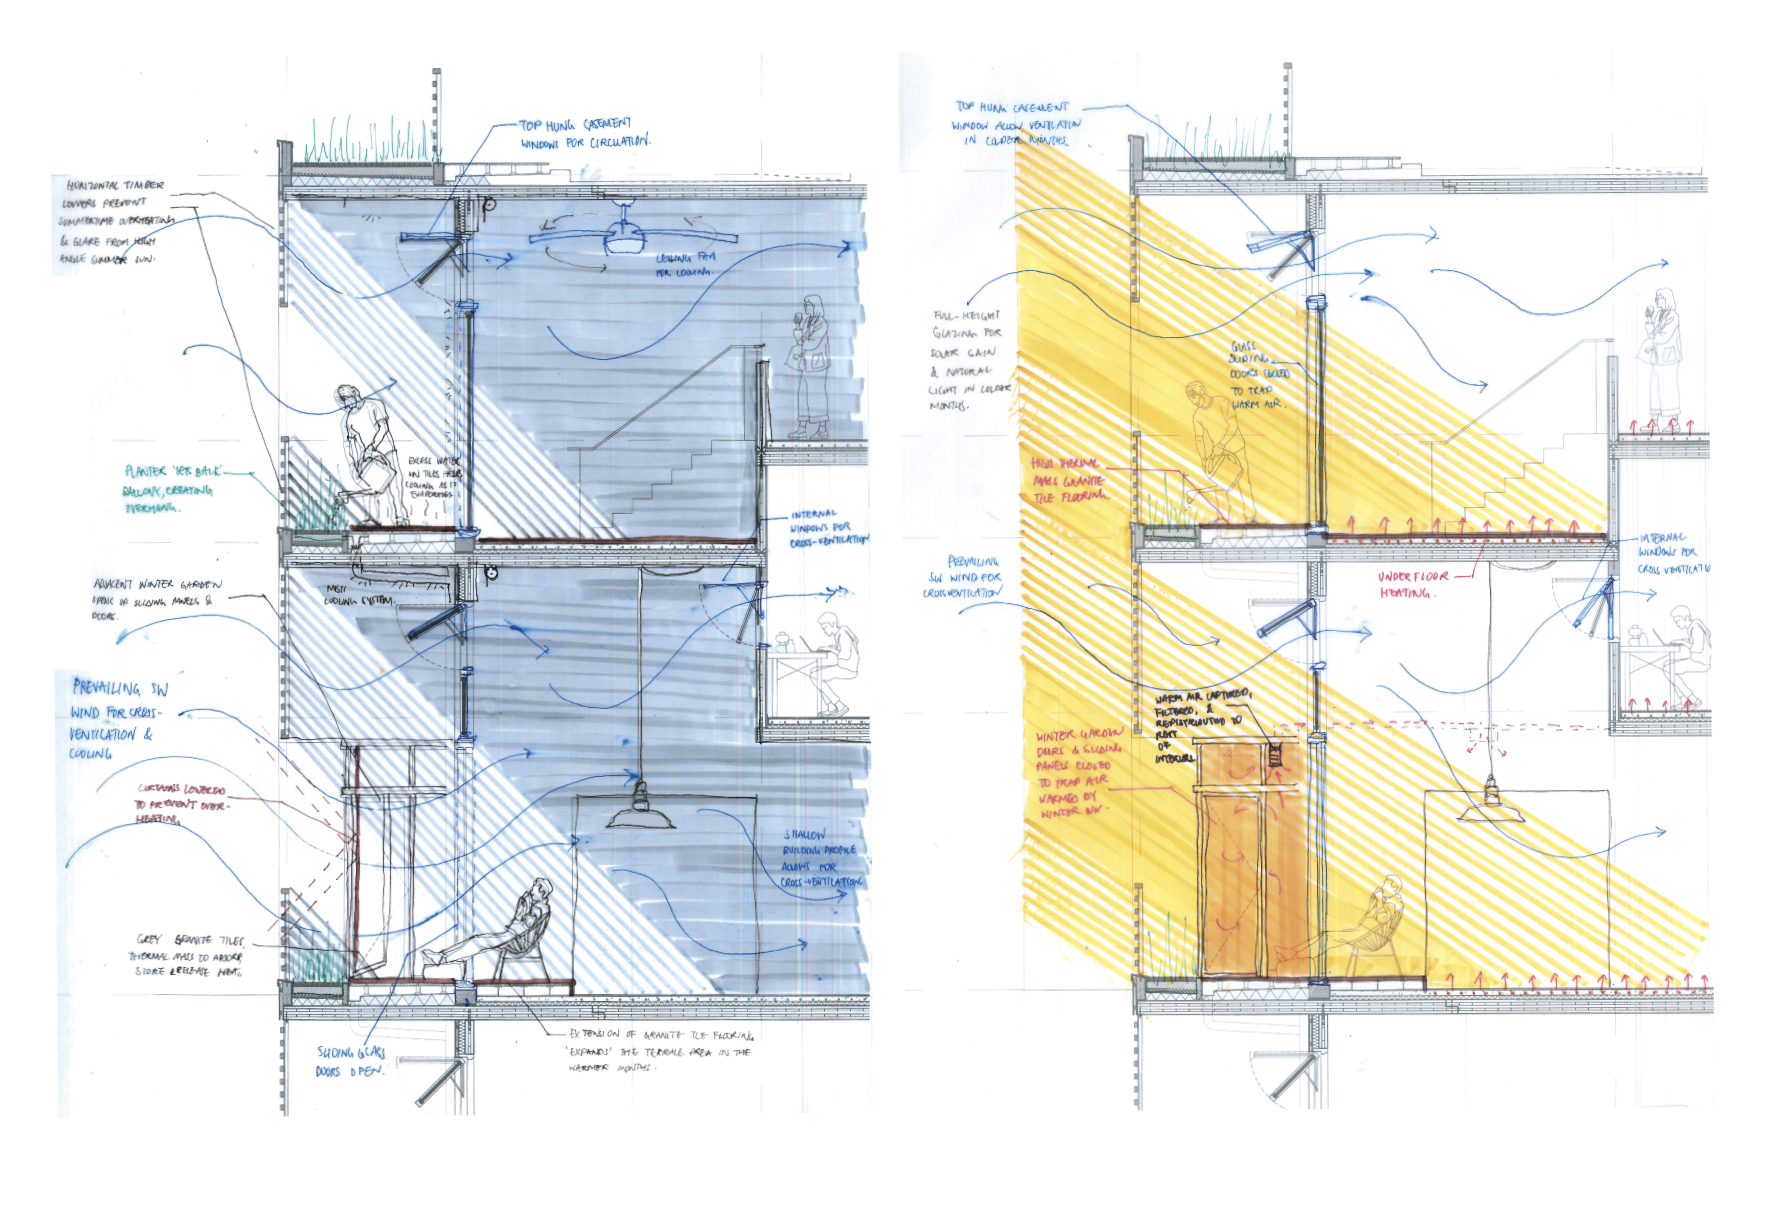 TOP HUNG CASEMENT
WINDOWS FOR CIRCULATION.
HORIZONTAL TIMBER
LOUVERS PREVENT
SUMMERTIME OVERHEATING
& GLARE FROM HIGH
ANGLE SUMMER SUN.
CEILING FAN
FOR COOLING.
PLANTER 'SETS BACK'
BALCONY, CREATING
OVERHANG.
EXCESS WATER
ON TILES HELPS
COOLING AS IT
EVAPORATES
INTERNAL
WINDOWS FOR
CROSS-VENTILATION
ADJACENT WINTER GARDEN
OPENS UP SLIDING PANELS &
DOORS.
MIST
COOLING SYSTEM.
PREVAILING SW
WIND FOR CROSS-
VENTILATION &
COOLING
CURTAINS LOWERED
TO PREVENT OVER-
HEATING
SHALLOW
BUILDING PROFILE
ALLOWS FOR
CROSS-VENTILATION.
GREY GRANITE TILES.
THERMAL MASS TO ABSORB,
STORE & RELEASE HEAT.
SLIDING GLASS
DOORS OPEN.
EXTENSION OF GRANITE TILE FLOORING
'EXPANDS' THE TERRACE AREA IN THE
WARMER MONTHS.
TOP HUNG CASEMENT
WINDOW ALLOW VENTILATION
IN COLDER MONTHS
FULL-HEIGHT
GLAZING FOR
SOLAR GAIN
& NATURAL
LIGHT IN COLDER
MONTHS.
GLASS
SLIDING
DOORS CLOSED
TO TRAP
WARM AIR.
HIGH THERMAL
MASS GRANITE
TILE FLOORING.
PREVAILING
SW WIND FOR
CROSS VENTILATION
UNDERFLOOR
HEATING.
INTERNAL
WINDOWS FOR
CROSS VENTILATIO
WARM AIR CAPTURED,
FILTERED, &
REDISTRIBUTED TO
REST
OF
INTERIORS.
WINTER GARDEN
DOORS & SLIDING
PANELS CLOSED
TO TRAP AIR
WARMED BY
WINTER SUN.